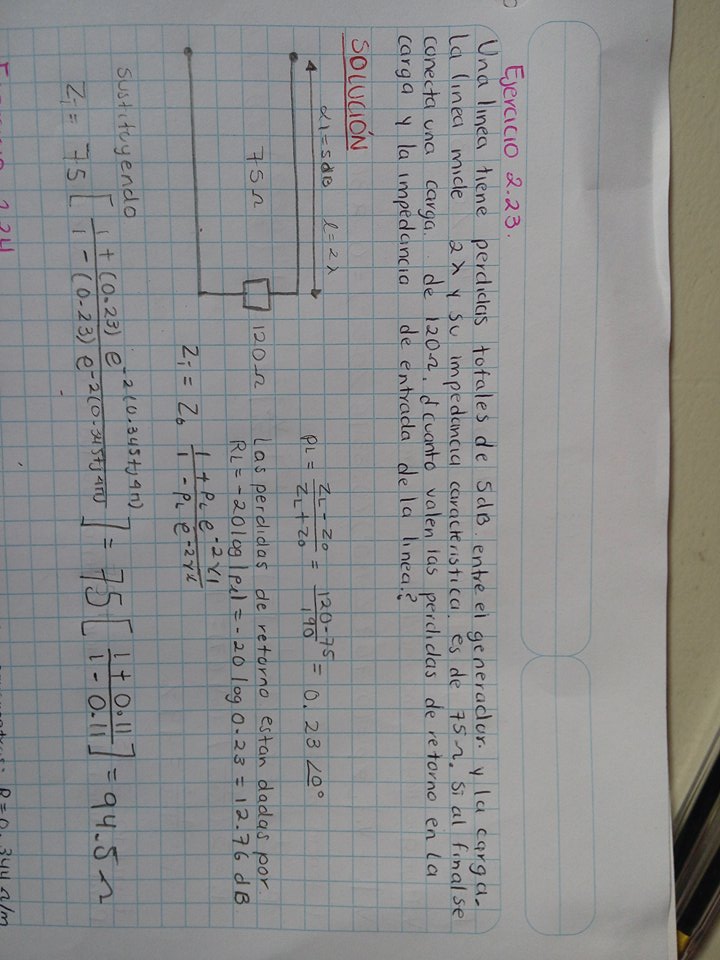 Ejercicio 2.23.
Una linea tiene perdidas totales de 5dB. entre el generador y la carga.
La linea mide 2λ y su impedancia caracteristica. es de 75Ω. si al final se
conecta una carga. de 120Ω. ¿cuanto valen las perdidas de retorno en la
carga y la impedancia de entrada de la linea?
SOLUCIÓN
αl=5dB l=2λ
75Ω
120Ω
ρL = (ZL - Z0)/(ZL + Z0) = (120-75)/190 = 0.23 ∠0°
Las perdidas de retorno estan dadas por.
RL = -20 log |ρL| = -20 log 0.23 = 12.76 dB
Zi = Z0 (1 + ρL e^-2γl)/(1 - ρL e^-2γl)
sustituyendo
Zi = 75 [(1 + (0.23) e^-2(0.345+j4π))/(1 - (0.23) e^-2(0.345+j4π))] = 75 [(1 + 0.11)/(1 - 0.11)] = 94.5 Ω
2.24
R=0.344 Ω/m